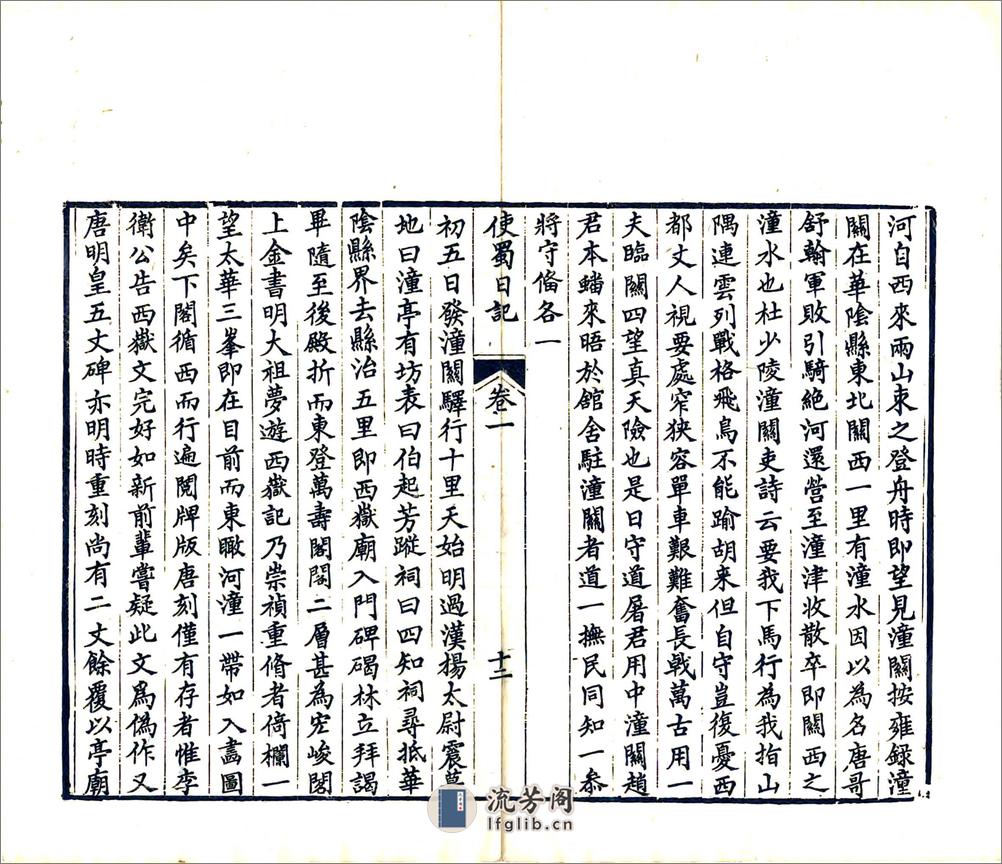 河自西來兩山束之登舟時即望見潼關按雍錄潼
關在華陰縣東北關西一里有潼水因以為名唐哥
舒翰軍敗引騎絕河還營至潼津收散卒即關西之
潼水也杜少陵潼關吏詩云要我下馬行為我指山
隅連雲列戰格飛鳥不能踰胡來但自守豈復憂西
都丈人視要處窄狹容單車艱難奮長戟萬古用一
夫臨關四望真天險也是日守道屠君用中潼關趙
君本蟠來晤於館舍駐潼關者道一撫民同知一叅
將守備各一
使蜀日記
卷二
十二
初五日發潼關驛行十里天始明過漢揚太尉震墓
地曰潼亭有坊表曰伯起芳蹤祠曰四知祠尋抵華
陰縣界去縣治五里即西嶽廟入門碑碣林立拜謁
畢隨至後殿折而東登萬壽閣閣二層甚為宏峻閣
上金書明大祖夢遊西嶽記乃崇禎重脩者倚欄一
望太華三峯即在目前而東瞰河潼一帶如入畵圖
中矣下閣循西而行遍閱牌版唐刻僅有存者惟李
衛公告西嶽文完好如新前輩嘗疑此文爲偽作又
唐明皇五丈碑亦明時重刻尚有二丈餘覆以亭廟
流芳阁
lfglib.cn